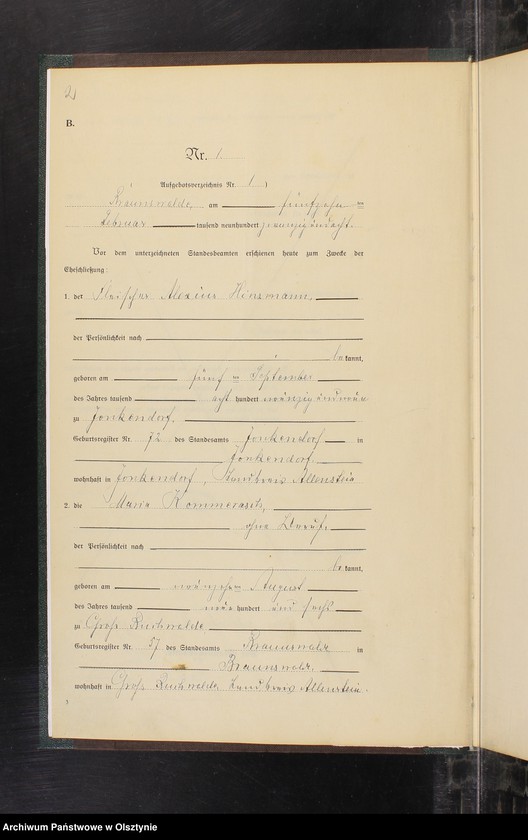 2
B.
Nr. 1
Aufgebotsverzeichnis Nr. 1)
Braunswalde, am fünfzehnten
Februar tausend neunhundert zwanzig und acht.
Vor dem unterzeichneten Standesbeamten erschienen heute zum Zwecke der
Eheschließung:
1. der Fleischer Alexius
der Persönlichkeit nach
be kannt,
geboren am fünften September
des Jahres tausend acht hundert
zu Jonkendorf.
Geburtsregister Nr. 72 des Standesamts Jonkendorf in
Jonkendorf.
wohnhaft in Jonkendorf, Landkreis Allenstein
2. die Maria
ohne Beruf.
der Persönlichkeit nach
be kannt,
geboren am August
des Jahres tausend neun hundert und sechs
zu Groß Buchwalde
Geburtsregister Nr. 57 des Standesamts Braunswalde in
Braunswalde.
wohnhaft in Groß Buchwalde, Landkreis Allenstein.
Archiwum Państwowe w Olsztynie